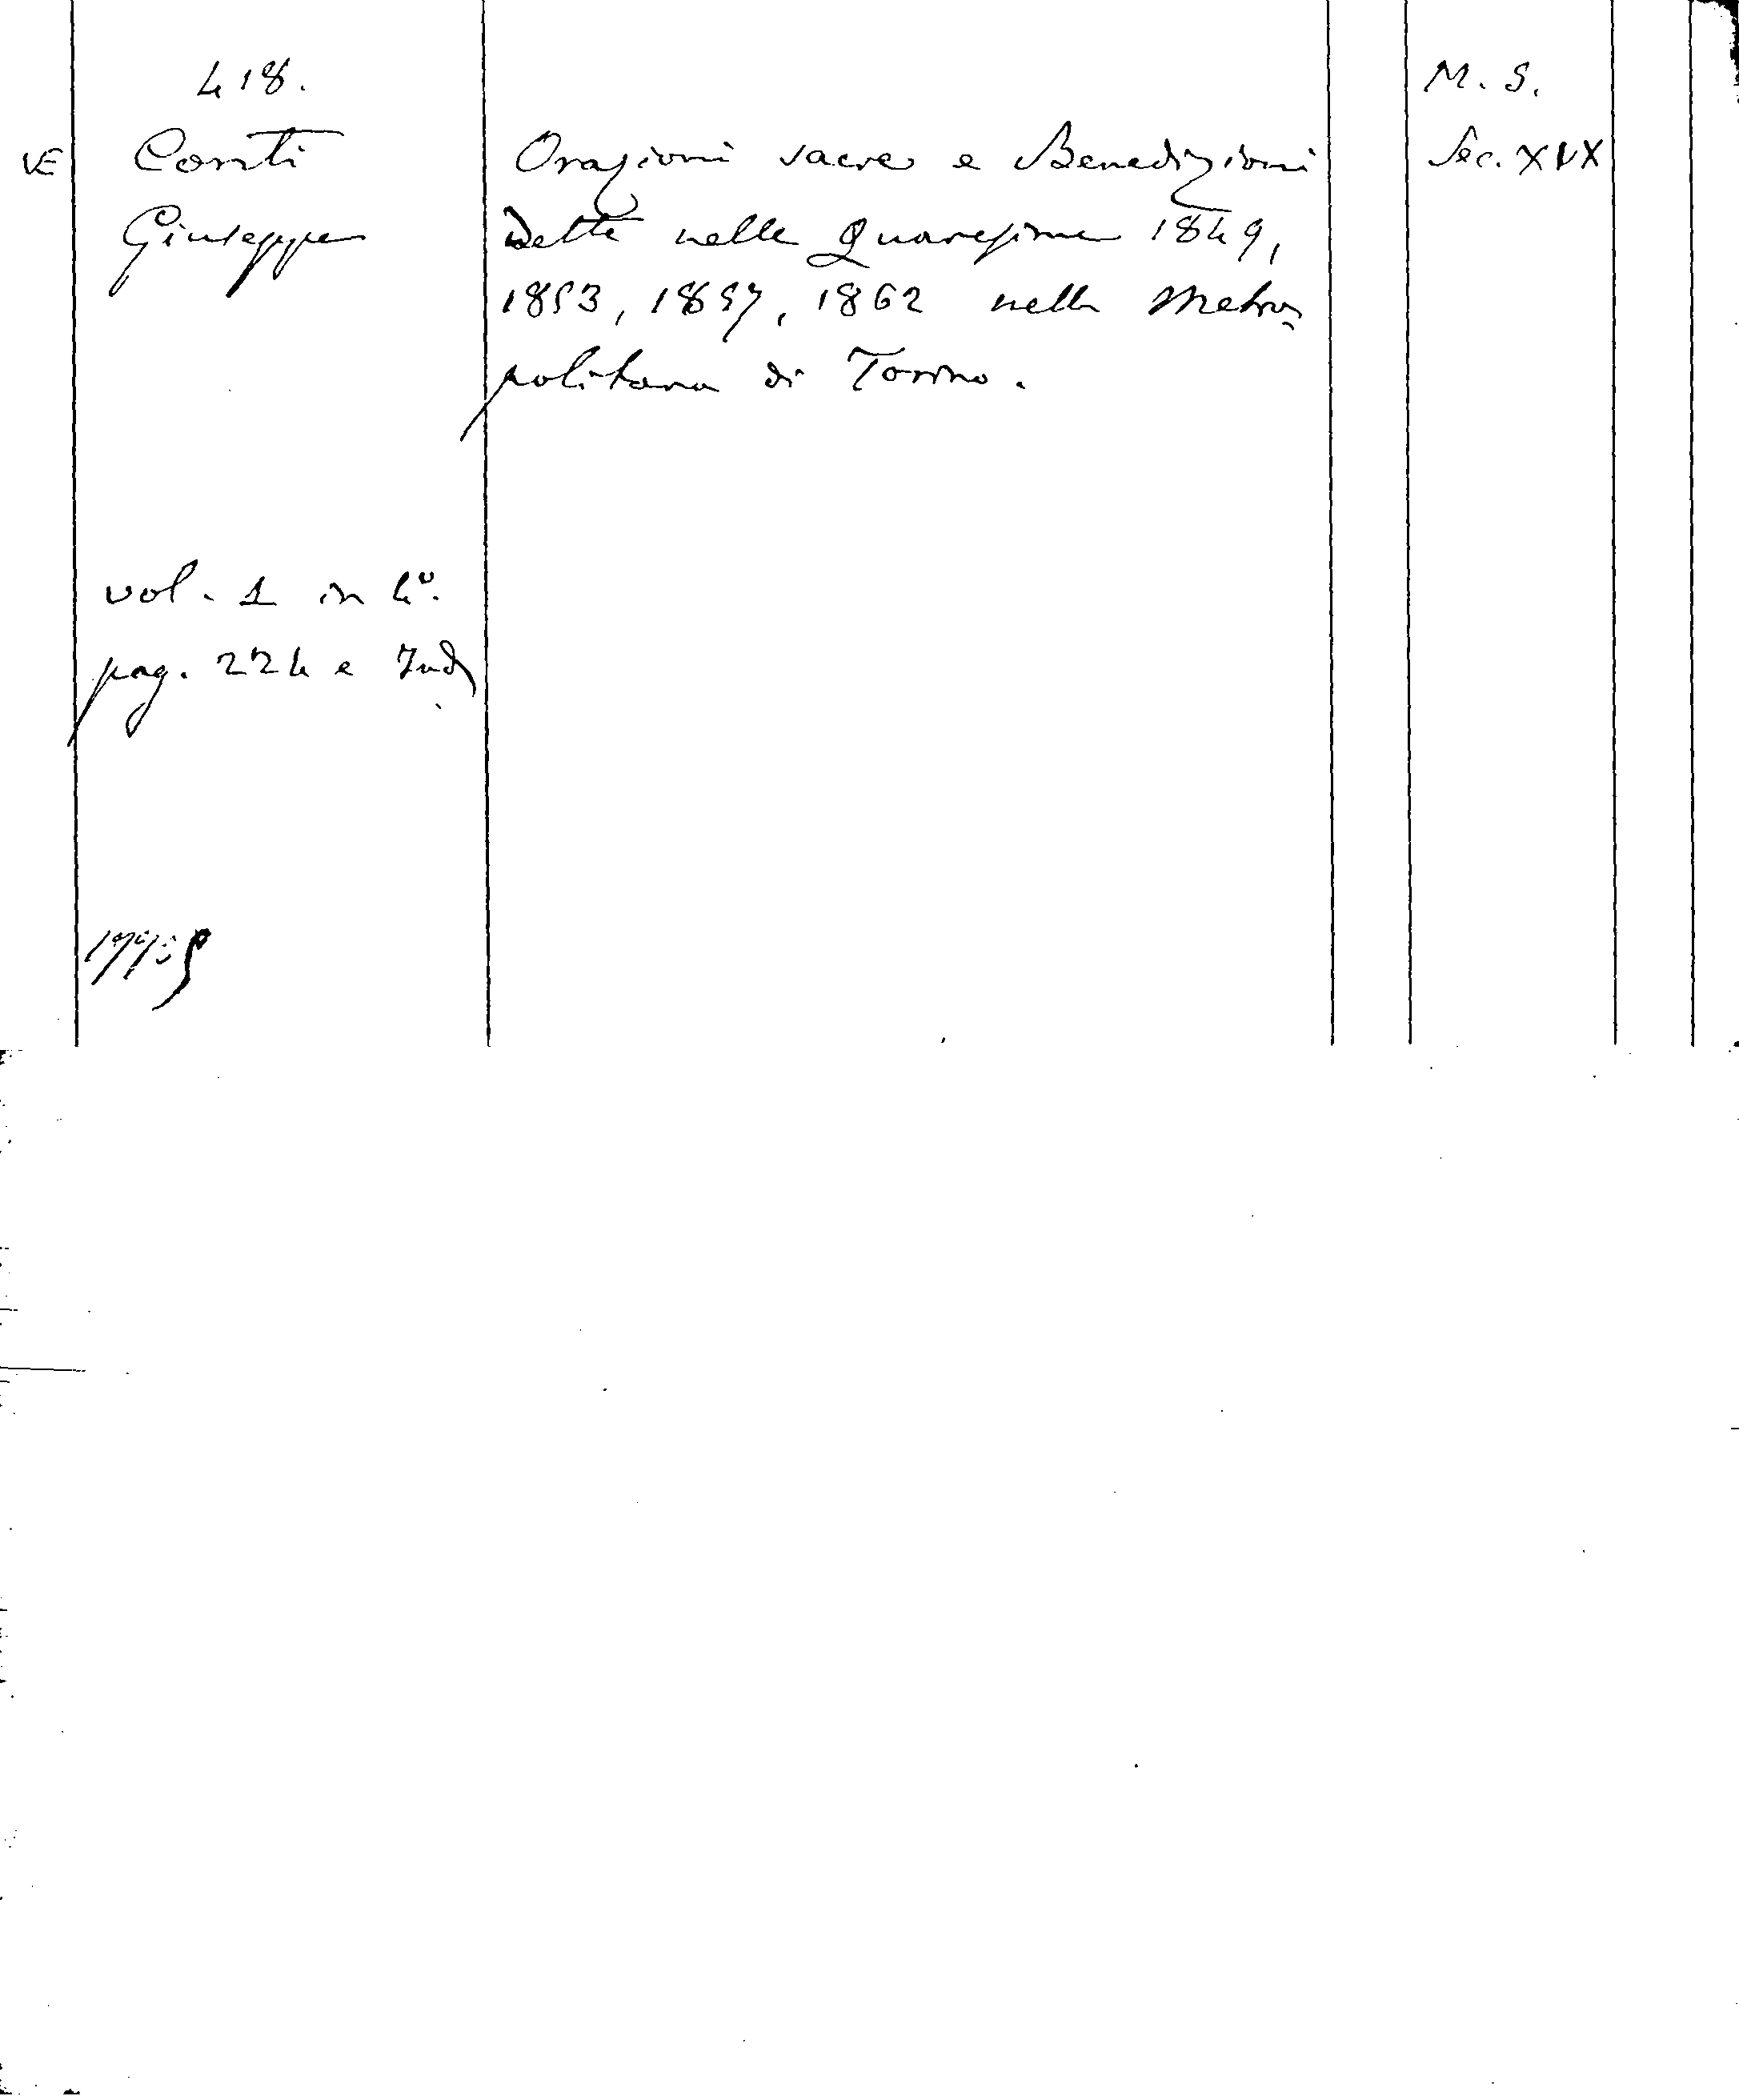 418.
M. S.
VE
Conti
Orazioni sacre e Benedizioni
Sec. XIX
Giuseppe
dette nelle Quaresime 1849,
1853, 1857, 1862 nella Metro-
politana di Torino.
vol. 1 in 4º.
pag. 224 e Ind.